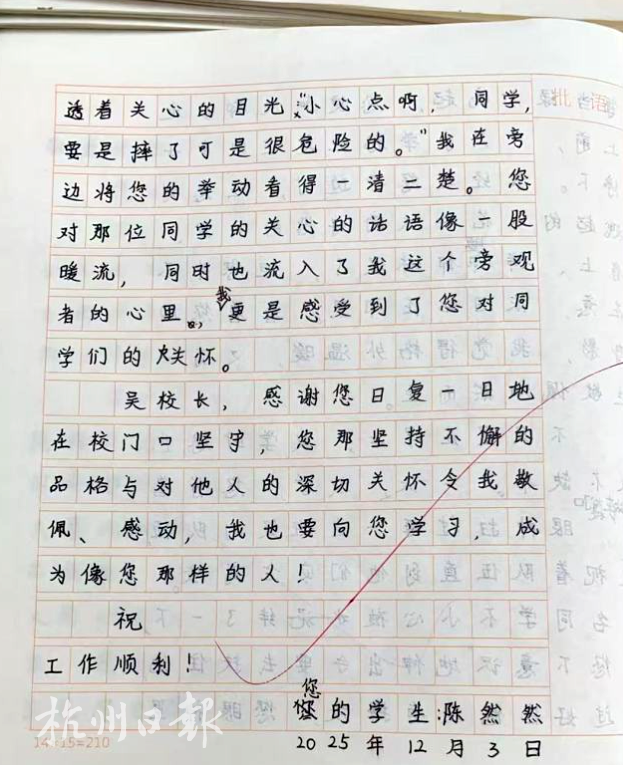 透着关心的目光:“小心点啊,同学,
要是摔了可是很危险的。”我在旁
边将您的举动看得一清二楚。您
对那位同学的关心的话语像一股
暖流,同时也流入了我这个旁观
者的心里。,我更是感受到了您对同
学们的关怀。
吴校长,感谢您日复一日地
在校门口坚守,您那坚持不懈的
品格与对他人的深切关怀令我敬
佩、感动,我也要向您学习,成
为像您那样的人!
祝
工作顺利!
您的学生:陈然然
2025年12月3日
杭州日報
14×15=210